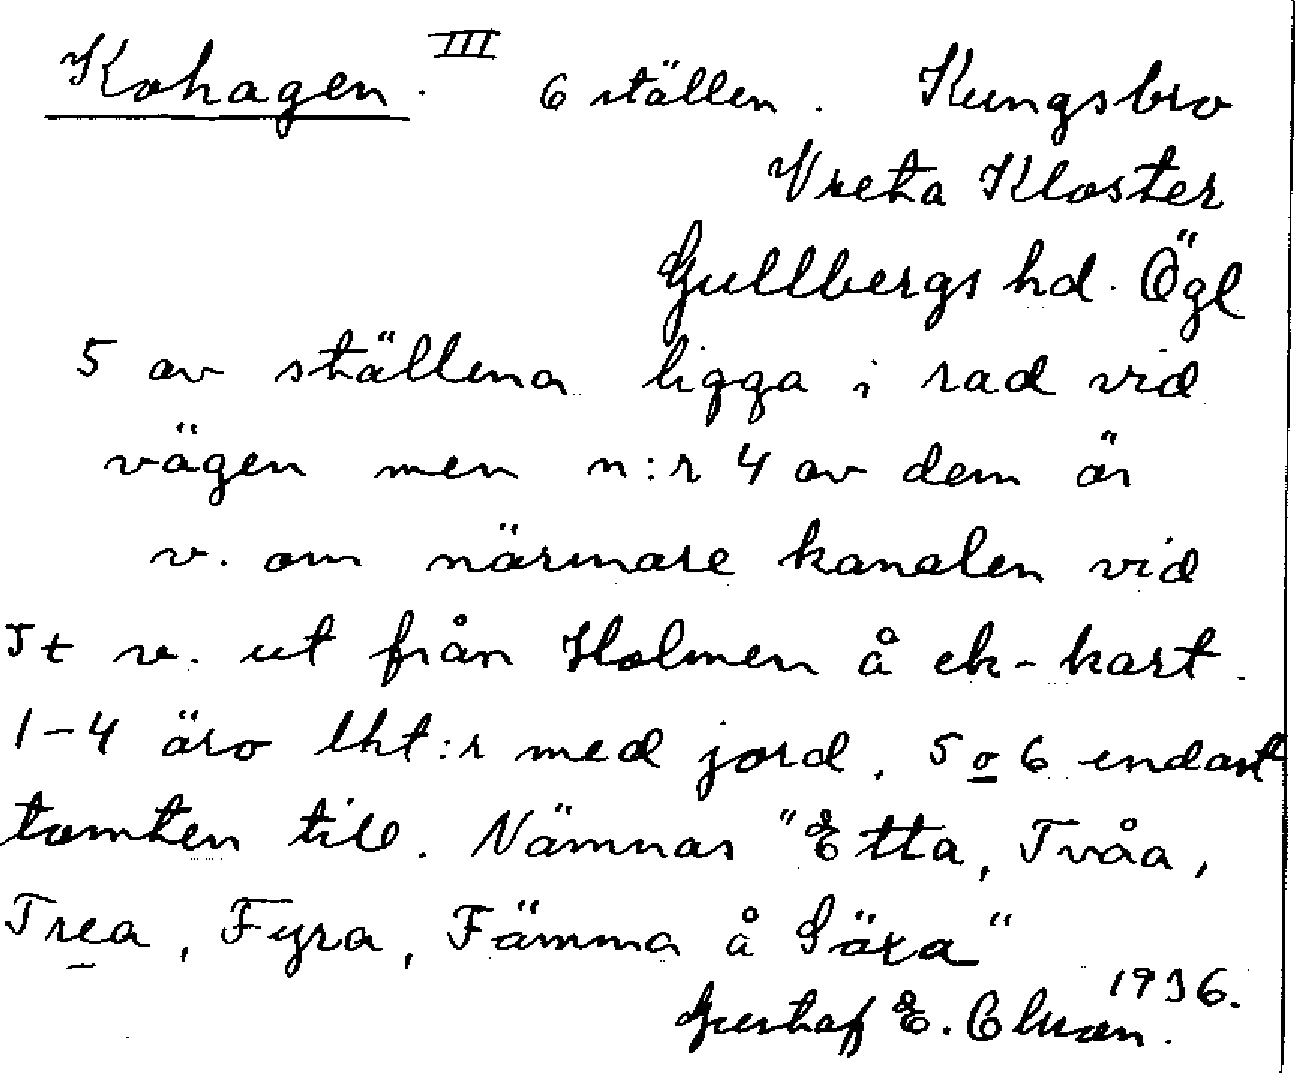 Kohagen. III 6 ställen. Kungsbro
Vreta Kloster
Gullbergs hd. Ögl
5 av ställena ligga i rad vid
vägen men n:r 4 av dem är
v. om närmare kanalen vid
St v. ut från Holmen å ek-kart.
1-4 äro lht:r med jord, 5 o 6 endast
tomten till. Nämnas "Etta, Tvåa,
Trea, Fyra, Fämma å Säxa"
1936.
Gustaf E. Clmon.